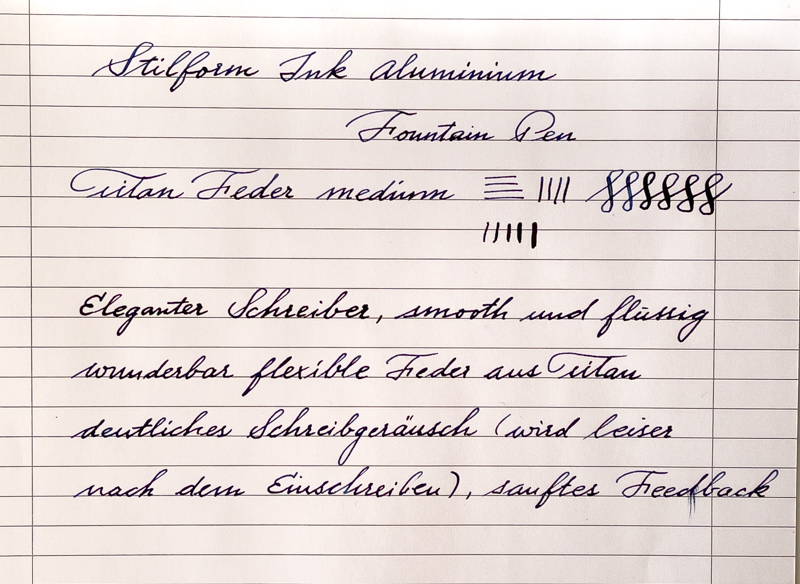 Stilform Ink Aluminium
Fountain Pen
Titan Feder medium
Eleganter Schreiber, smooth und flüssig
wunderbar flexible Feder aus Titan
deutliches Schreibgeräusch (wird leiser
nach dem Einschreiben), sanftes Feedback